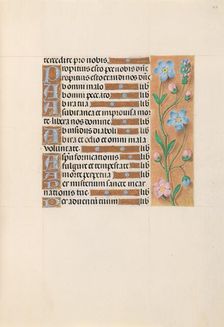 tercedite pro nobis.
Propitius esto parce nobis dñe
Propitius esto exaudi nos dñe
Ab omni malo lib
Ab omni peccato lib
Ab ira tua lib
A subitanea et improuisa mor
te libera nos domine lib
Ab insidiis diaboli lib
Ab ira et odio et omni mala
voluntate lib
A spiritu fornicationis lib
A fulgure et tempestate lib
A morte perpetua lib
Per misterium sancte incar
nationis tue lib
Per aduentum tuum lib